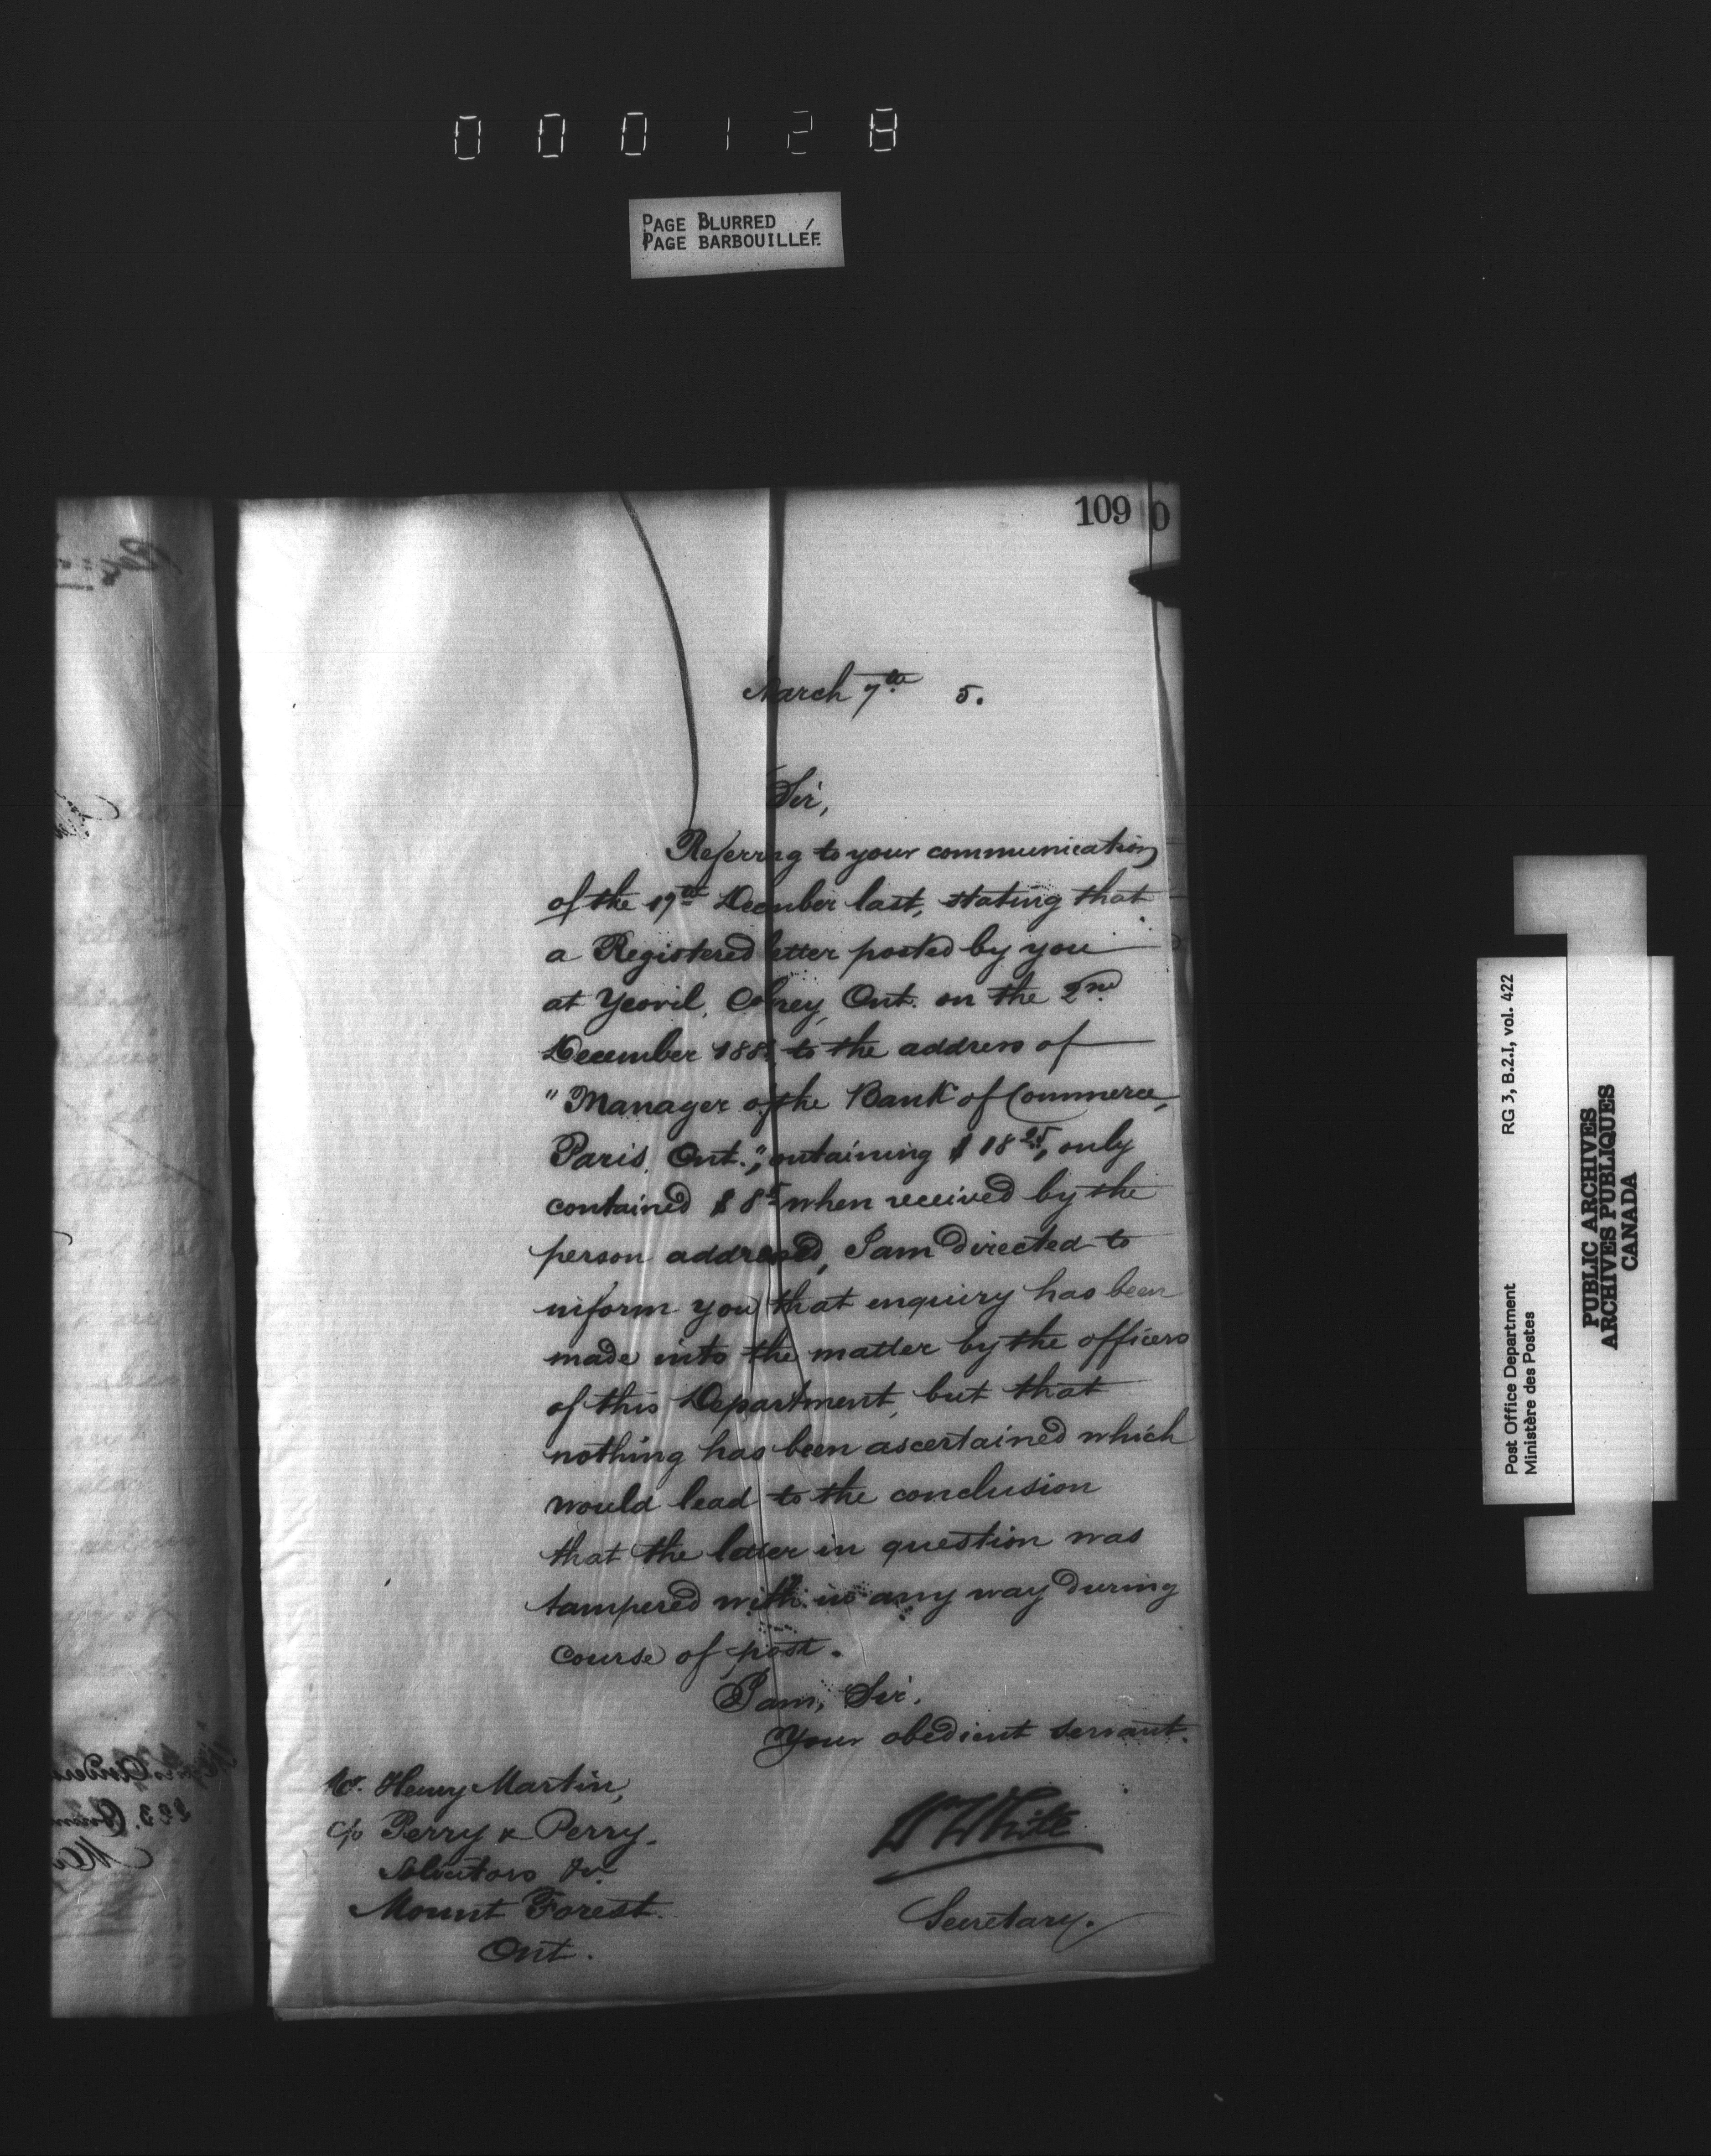 000128
PAGE BLURRED
PAGE BARBOUILLÉE
109
0
March 7th 5.
Sir,
Referring to your communication
of the 19th December last, stating that
a Registered letter posted by you
at Yeovil, Ont. on the 2nd
December 188 to the address of
"Manager of the Bank of Commerce,
Paris, Ont.", containing $18 25, only
contained $8 when received by the
person addressed, I am directed to
inform you that enquiry has been
made into the matter by the officers
of this Department, but that
nothing has been ascertained which
would lead to the conclusion
that the letter in question was
tampered with in any way during
course of post.
I am, Sir,
Your obedient servant.
Mr. Henry Martin,
c/o Perry & Perry,
Solicitors &c.
Mount Forest.
Ont.
W White
Secretary.
Post Office Department
Ministère des Postes
RG 3, B.2.I, vol. 422
PUBLIC ARCHIVES
ARCHIVES PUBLIQUES
CANADA